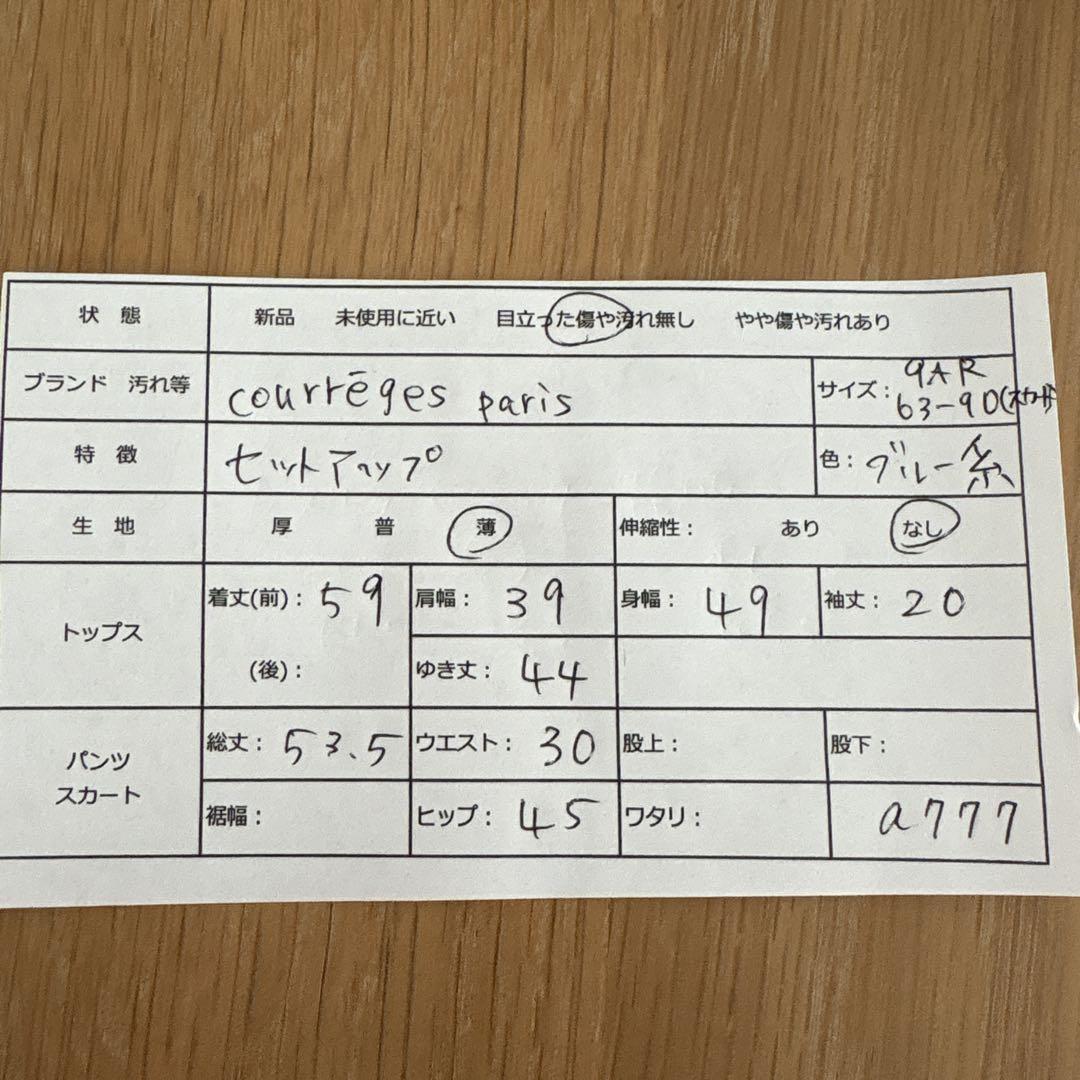 状 態 新品 未使用に近い 目立った傷や汚れ無し やや傷や汚れあり
ブランド 汚れ等 courrēges paris サイズ: 9AR
63-90(スカート)
特 徴 セットアップ 色: グルー系
生 地 厚 普 薄 伸縮性: あり なし
トップス 着丈(前): 59 肩幅: 39 身幅: 49 袖丈: 20
(後): ゆき丈: 44
パンツ スカート 総丈: 53.5 ウエスト: 30 股上: 股下:
裾幅: ヒップ: 45 ワタリ: a777